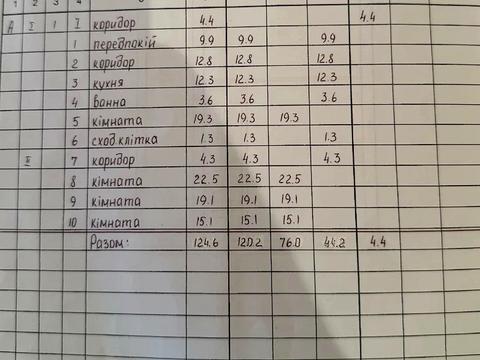 1 2 3 4
А I 1 I коридор 4.4 4.4
1 передпокій 9.9 9.9 9.9
2 коридор 12.8 12.8 12.8
3 кухня 12.3 12.3 12.3
4 ванна 3.6 3.6 3.6
5 кімната 19.3 19.3 19.3
6 сход.клітка 1.3 1.3 1.3
II 7 коридор 4.3 4.3 4.3
8 кімната 22.5 22.5 22.5
9 кімната 19.1 19.1 19.1
10 кімната 15.1 15.1 15.1
Разом: 124.6 120.2 76.0 44.2 4.4